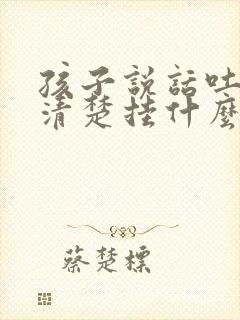 孩子説話吐
清楚挂什麼
蔡楚標